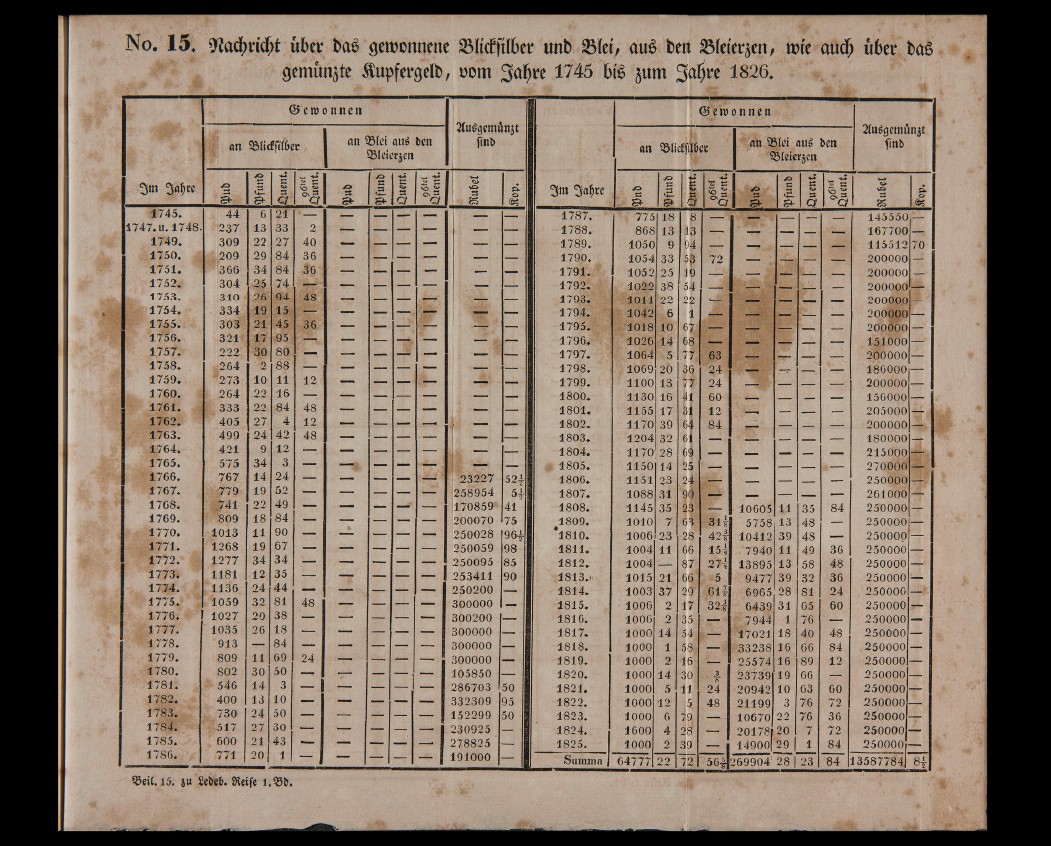 No. 15. Nachricht über das gewonnene Blicksilber und Blei, aus den Bleierzen, wie auch über das
gemünzte Kupfergeld, vom Jahre 1745 bis zum Jahre 1826.
Im Jahre | Gewonnen | Ausgemünzt sind
an Blicksilber | an Blei aus den Bleierzen
Pud | Pfund | Quent. | 96tel Quent. | Pud | Pfund | Quent. | 96tel Quent. | Rubel | Kop.
1745. 44 6 21 — — — — — — —
1747. u. 1748. 237 13 33 2 — — — — — —
1749. 309 22 27 40 — — — — — —
1750. 209 29 84 36 — — — — — —
1751. 366 34 84 36 — — — — — —
1752. 304 25 74 — — — — — — —
1753. 310 26 94 48 — — — — — —
1754. 334 19 15 — — — — — — —
1755. 303 21 45 36 — — — — — —
1756. 321 17 95 — — — — — — —
1757. 222 30 80 — — — — — — —
1758. 264 2 88 — — — — — — —
1759. 273 10 11 12 — — — — — —
1760. 264 22 16 — — — — — — —
1761. 333 22 84 48 — — — — — —
1762. 405 27 4 12 — — — — — —
1763. 499 24 42 48 — — — — — —
1764. 421 9 12 — — — — — — —
1765. 575 34 3 — — — — — — —
1766. 767 14 24 — — — — — 23227 52½
1767. 779 19 52 — — — — — 258954 5½
1768. 741 22 49 — — — — — 170859 41
1769. 809 18 84 — — — — — 200070 75
1770. 1013 11 90 — — — — — 250028 96½
1771. 1268 19 67 — — — — — 250059 98
1772. 1277 34 34 — — — — — 250095 85
1773. 1181 12 35 — — — — — 253411 90
1774. 1136 24 44 — — — — — 250200 —
1775. 1059 32 81 48 — — — — 300000 —
1776. 1027 29 38 — — — — — 300200 —
1777. 1035 26 18 — — — — — 300000 —
1778. 913 — 84 — — — — — 300000 —
1779. 809 11 69 24 — — — — 300000 —
1780. 802 30 50 — — — — — 105850 —
1781. 546 14 3 — — — — — 286703 50
1782. 400 13 10 — — — — — 332309 95
1783. 730 24 50 — — — — — 152299 50
1784. 517 27 30 — — — — — 230925 —
1785. 600 21 43 — — — — — 278825 —
1786. 771 20 1 — — — — — 191000 —
Im Jahre | Gewonnen | Ausgemünzt sind
an Blicksilber | an Blei aus den Bleierzen
Pud | Pfund | Quent. | 96tel Quent. | Pud | Pfund | Quent. | 96tel Quent. | Rubel | Kop.
1787. 775 18 8 — — — — — 145550 —
1788. 868 13 13 — — — — — 167700 —
1789. 1050 9 94 — — — — — 115512 70
1790. 1054 33 53 72 — — — — 200000 —
1791. 1052 25 19 — — — — — 200000 —
1792. 1022 38 54 — — — — — 200000 —
1793. 1011 22 22 — — — — — 200000 —
1794. 1042 6 1 — — — — — 200000 —
1795. 1018 10 67 — — — — — 200000 —
1796. 1026 14 68 — — — — — 151000 —
1797. 1064 5 77 63 — — — — 200000 —
1798. 1069 20 36 24 — — — — 186000 —
1799. 1100 13 77 24 — — — — 200000 —
1800. 1130 16 41 60 — — — — 156000 —
1801. 1155 17 31 12 — — — — 205000 —
1802. 1170 39 64 84 — — — — 200000 —
1803. 1204 32 61 — — — — — 180000 —
1804. 1170 28 69 — — — — — 215000 —
1805. 1150 14 25 — — — — — 270000 —
1806. 1151 23 24 — — — — — 250000 —
1807. 1088 31 90 — — — — — 261000 —
1808. 1145 35 23 — 10605 11 35 84 250000 —
1809. 1010 7 63 5758 13 48 — 250000 —
1810. 1006 23 28 10412 39 48 — 250000 —
1811. 1004 11 66 7940 11 49 36 250000 —
1812. 1004 — 87 13895 13 58 48 250000 —
1813. 1015 21 66 5 9477 39 32 36 250000 —
1814. 1003 37 29 6965 28 81 24 250000 —
1815. 1006 2 17 6439 31 65 60 250000 —
1816. 1006 2 35 — 7944 1 76 — 250000 —
1817. 1000 14 54 — 17021 18 40 48 250000 —
1818. 1000 1 58 — 33238 16 66 84 250000 —
1819. 1000 2 16 — 25574 16 89 12 250000 —
1820. 1000 14 30 23739 19 66 — 250000 —
1821. 1000 5 11 24 20942 10 63 60 250000 —
1822. 1000 12 5 48 21199 3 76 72 250000 —
1823. 1000 6 79 — 10670 22 76 36 250000 —
1824. 1600 4 28 — 20178 20 7 72 250000 —
1825. 1000 2 39 — 14900 29 1 84 250000 —
Summa 64777 22 72 269904 28 23 84 13587784 8½
Beil. 15. zu Ledeb. Reise 1. Bd.